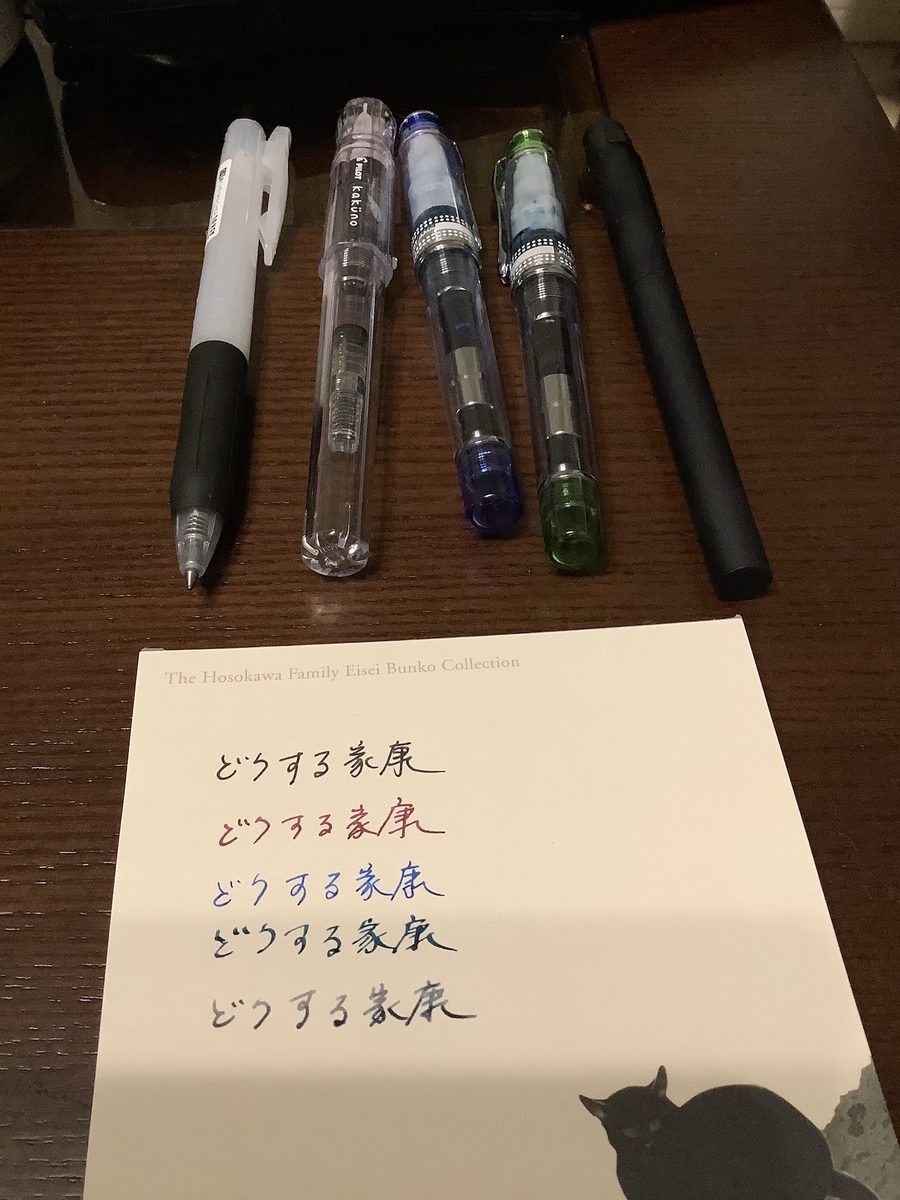 PILOT kaküno
The Hosokawa Family Eisei Bunko Collection
どうする家康
どうする家康
どうする家康
どうする家康
どうする家康